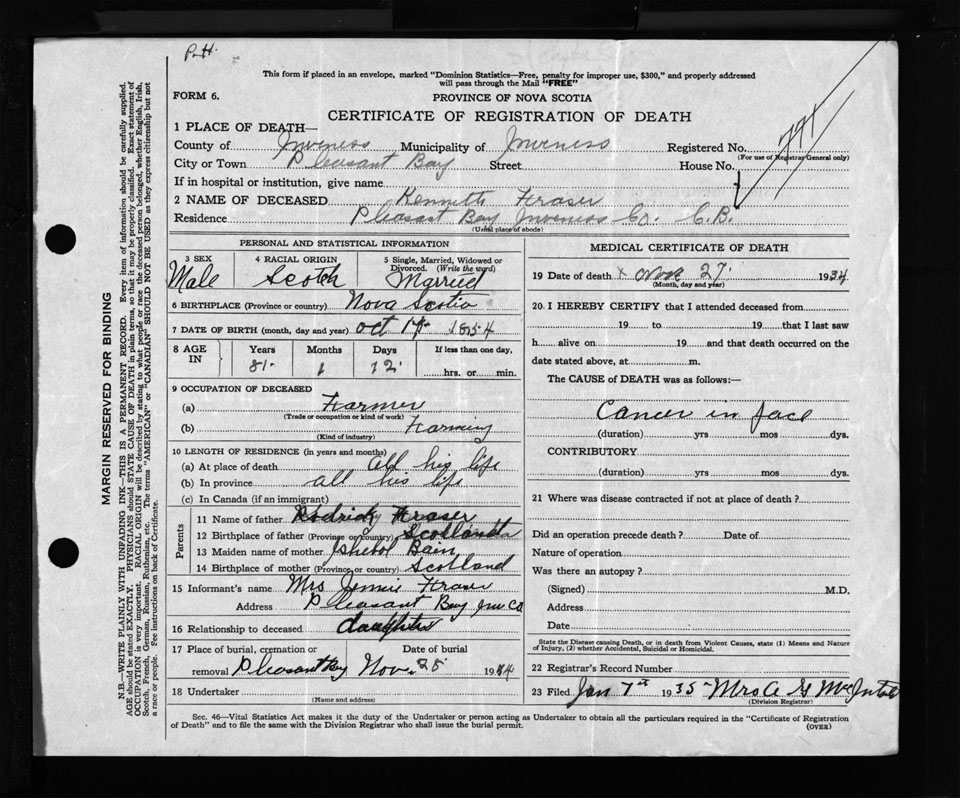 P.H.
This form if placed in an envelope, marked "Dominion Statistics—Free, penalty for improper use, $300," and properly addressed
will pass through the Mail "FREE"
FORM 6.
PROVINCE OF NOVA SCOTIA
CERTIFICATE OF REGISTRATION OF DEATH
1 PLACE OF DEATH—
County of Inverness Municipality of Inverness Registered No.
(For use of Registrar General only)
City or Town Pleasant Bay Street House No.
If in hospital or institution, give name
2 NAME OF DECEASED Kenneth Fraser
Residence Pleasant Bay Inverness Co. C.B.
(Usual place of abode)
PERSONAL AND STATISTICAL INFORMATION
3 SEX 4 RACIAL ORIGIN 5 Single, Married, Widowed or Divorced. (Write the word)
Male Scotch Married
6 BIRTHPLACE (Province or country) Nova Scotia
7 DATE OF BIRTH (month, day and year) Oct 1854
8 AGE IN Years Months Days If less than one day,
81 1 12 hrs. or min.
9 OCCUPATION OF DECEASED
(a) Farmer
(Trade or occupation or kind of work)
(b) Farming
(Kind of industry)
10 LENGTH OF RESIDENCE (in years and months)
(a) At place of death all his life
(b) In province all his life
(c) In Canada (if an immigrant)
Parents
11 Name of father Rodrick Fraser
12 Birthplace of father (Province or country) Scotland
13 Maiden name of mother Ishebol Bain
14 Birthplace of mother (Province or country) Scotland
15 Informant's name Mrs Jennie Fraser
Address Pleasant Bay Inv. Co
16 Relationship to deceased daughter
17 Place of burial, cremation or removal Date of burial
Pleasant Bay Nov. 28 1934
18 Undertaker
(Name and address)
MEDICAL CERTIFICATE OF DEATH
19 Date of death x Nov 27 1934
(Month, day and year)
20 I HEREBY CERTIFY that I attended deceased from
19 to 19 that I last saw
h alive on 19 and that death occurred on the
date stated above, at m.
The CAUSE of DEATH was as follows:—
Cancer in face
(duration) yrs mos dys.
CONTRIBUTORY
(duration) yrs mos dys.
21 Where was disease contracted if not at place of death?
Did an operation precede death? Date of
Nature of operation
Was there an autopsy?
(Signed) M.D.
Address
Date
State the Disease causing Death, or in death from Violent Causes, state (1) Means and Nature
of Injury, (2) whether Accidental, Suicidal or Homicidal.
22 Registrar's Record Number
23 Filed Jan 7th 1935 Mrs A G
(Division Registrar)
Sec. 46—Vital Statistics Act makes it the duty of the Undertaker or person acting as Undertaker to obtain all the particulars required in the "Certificate of Registration
of Death" and to file the same with the Division Registrar who shall issue the burial permit.
(OVER)
MARGIN RESERVED FOR BINDING
N.B.—WRITE PLAINLY WITH UNFADING INK—THIS IS A PERMANENT RECORD. Every item of information should be carefully supplied.
AGE should be stated EXACTLY. PHYSICIANS should STATE CAUSE OF DEATH in plain terms, so that it may be properly classified. Exact statement of
OCCUPATION is very important. RACIAL ORIGIN will be described by stating to what people or race the deceased person belonged, whether English, Irish,
Scotch, French, German, Russian, Ruthenian, etc. The terms "AMERICAN" or "CANADIAN" SHOULD NOT BE USED as they express citizenship but not
a race or people. See instructions on back of Certificate.